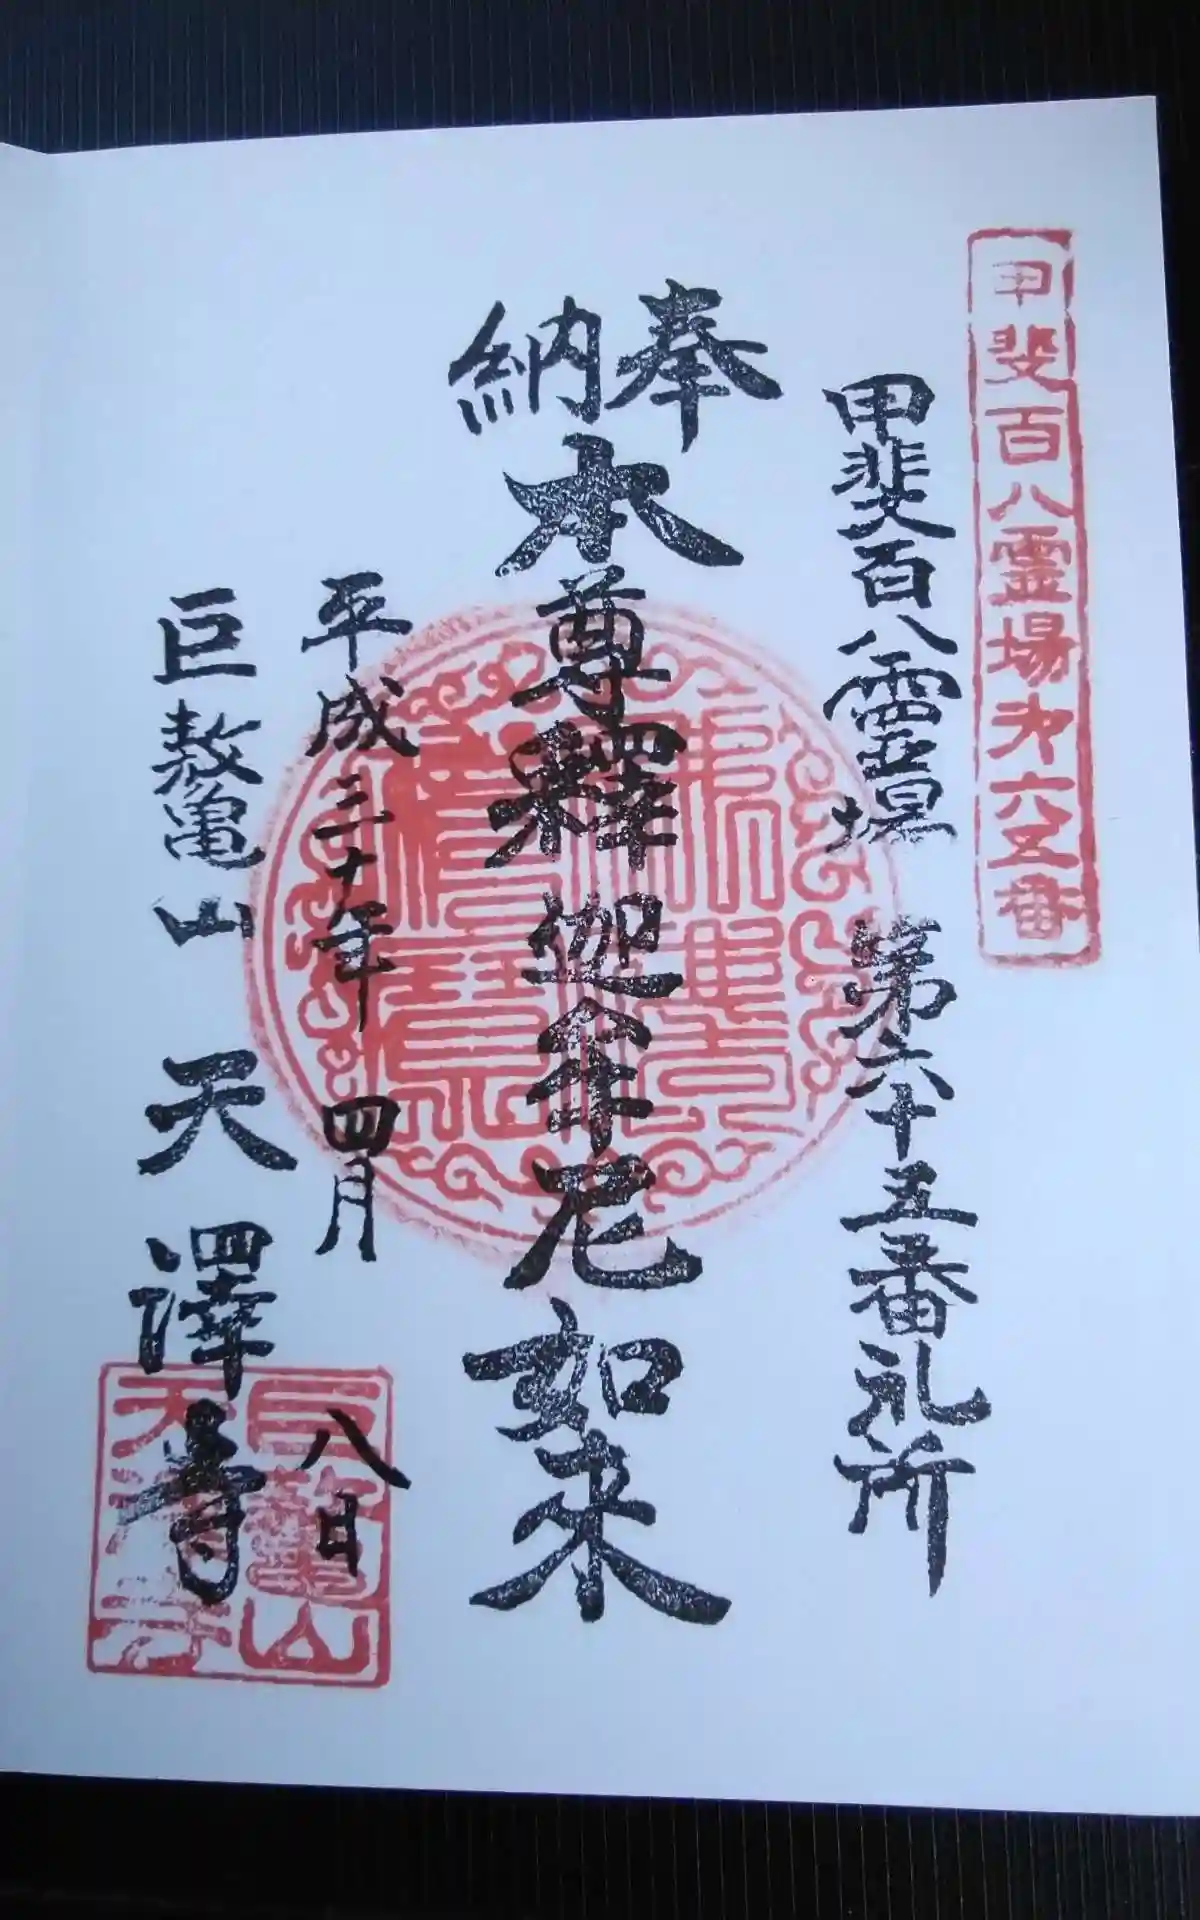 甲斐百八霊場㐧六五番
甲斐百八霊場 第六十五番礼所
奉納
本尊釋迦牟尼如来
平成三十年 四月 八日
巨鼇山 天澤寺
佛法僧寳
巨鼇山
天澤寺